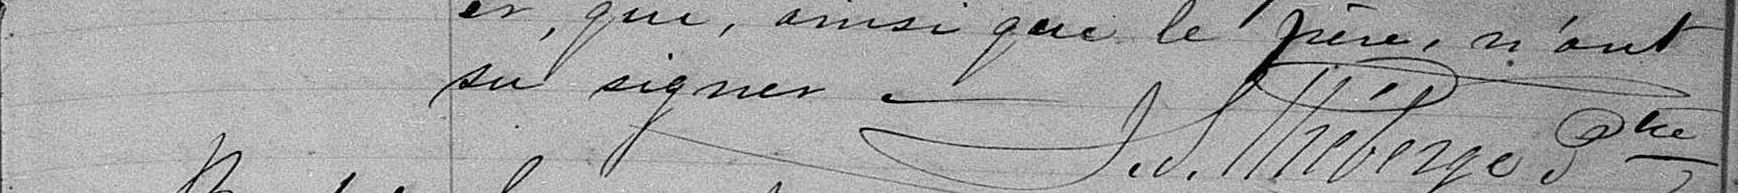 er, qui, ainsi que le père, n'ont
su signer
J. S. Théberge Ptre